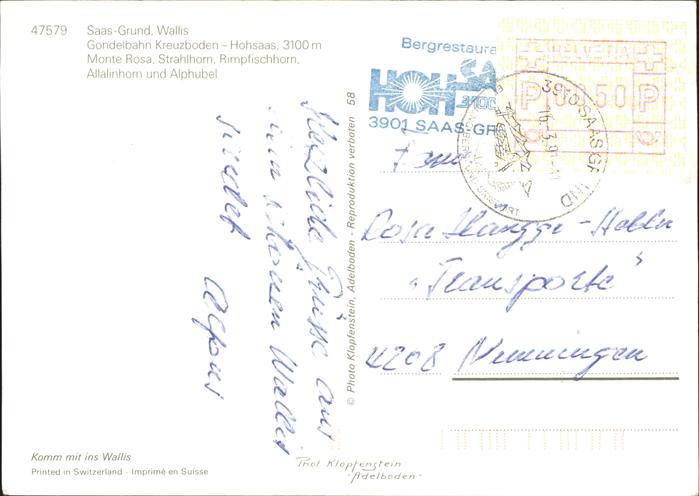 47579 Saas-Grund, Wallis
Gondelbahn Kreuzboden – Hohsaas, 3100 m
Monte Rosa, Strahlhorn, Rimpfischhorn,
Allalinhorn und Alphubel
Bergrestaura
HOH SA
3100
3901 SAAS-GR
HELVETIA
P 0050 P
3910 SAAS-GRUND
Herzliche Grüsse aus
dem schönen Wallis
sendet
Alfons
© Photo Klopfenstein, Adelboden - Reproduktion verboten 58
Fam.
Rosa Hänggi-Heller
"Transporte"
4208 Nunningen
Komm mit ins Wallis
Printed in Switzerland - Imprimé en Suisse
Phot Klopfenstein
-Adelboden-